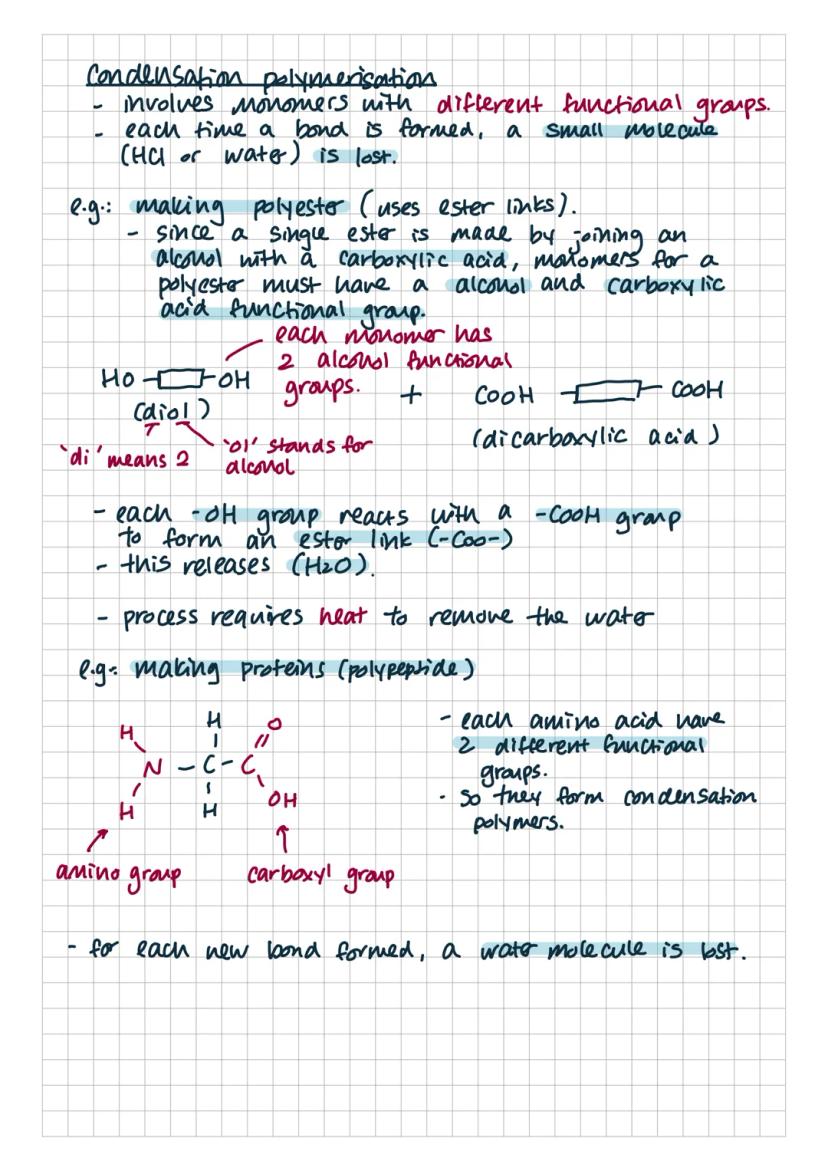 Condensation polymerisation
- involves monomers with different functional groups.
- each time a bond is formed, a small molecule
(HCl or water) is lost.
e.g.: making polyester (uses ester links).
- since a single ester is made by joining an
alcohol with a carboxylic acid, monomers for a
polyester must have a alcohol and carboxylic
acid functional group.
each monomer has
2 alcohol functional
groups.
HO OH
+
COOH COOH
(diol)
(dicarboxylic acid)
'di' means 2
'ol' stands for
alcohol
- each -OH group reacts with a -COOH group
to form an ester link (-COO-)
- this releases (H2O).
- process requires heat to remove the water
e.g: making proteins (polypeptide)
H H O
N - C - C
H H OH
amino group
carboxyl group
- each amino acid have
2 different functional
groups.
- so they form condensation
polymers.
- for each new bond formed, a water molecule is lost.